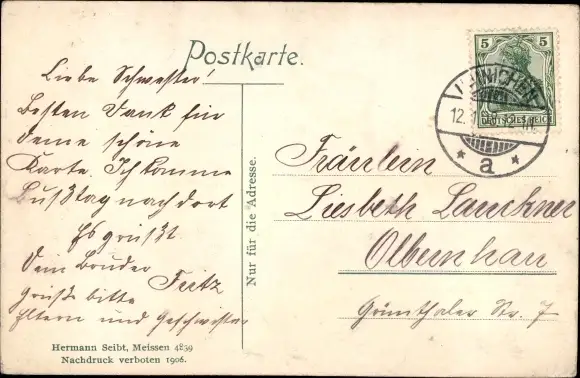 Postkarte.
Liebe Schwester!
Besten Dank für
deine schöne
Karte. Ich komme
Bußtag nach dort
Es grüßt
Dein Bruder
Fritz
Grüße bitte
Eltern und Geschwister
Hermann Seibt, Meissen 4839
Nachdruck verboten 1906.
Nur für die Adresse.
5 5
DEUTSCHES REICH
HAINICHEN
12.
* a *
Fräulein
Liesbeth Lauckner
Olbernhau
Grünthaler Str. 7